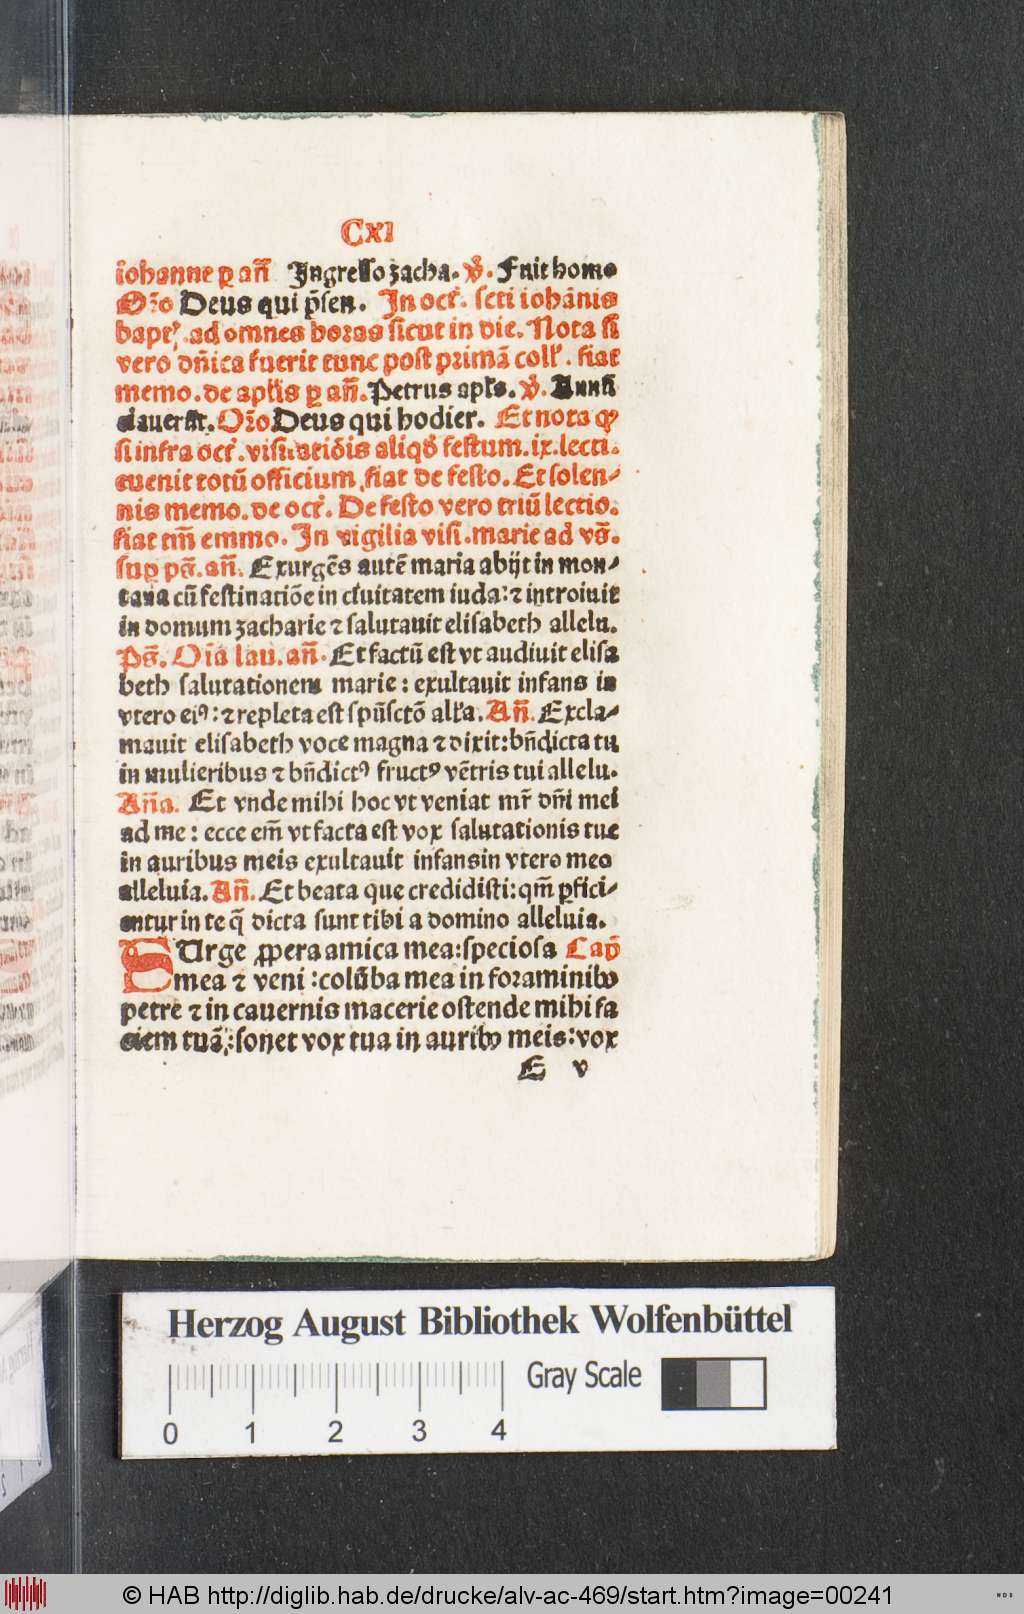 CXI
iohanne ꝑ an̄ Ingresso zacha. ℣. Fuit homo
Oꝛ̄o Deus qui p̄sen. In oct̉. scti iohānis
bapt̉. ad omnes horas sicut in die. Nota si
vero dn̄ica fuerit tunc post primā coll̉. fiat
memo. de apl̄is ꝑ an̄. Petrus apl̄s. ℣. Annū
ciauerūt. Oꝛ̄o Deus qui hodier. Et nota ꝙ
si infra oct̉. visitatiōis aliqđ festum. ix. lecti.
euenit totū officium, fiat de festo. Et solen⸗
nis memo. de oct̉. De festo vero triū lectio.
fiat tm̄ cmmo. In vigilia visi. marie ad vs̄.
suꝑ ps̄. an̄. Exurgēs autē maria abijt in mon⸗
tana cū festinatiōe in ciuitatem iuda: ⁊ introiuit
in domum zacharie ⁊ salutauit elisabeth allelu.
Ps̄. Oīa lau. an̄. Et factū est vt audiuit elisa
beth salutationem marie: exultauit infans in
vtero eiꝰ: ⁊ repleta est spūsctō all̉a. An̄. Excla⸗
mauit elisabeth voce magna ⁊ dixit: bn̄dicta tu
in mulieribus ⁊ bn̄dictꝰ fructꝰ vētris tui allelu.
An̄a. Et vnde mihi hoc vt veniat mr̄ dn̄i mei
ad me: ecce em̄ vt facta est vox salutationis tue
in auribus meis exultauit infans in vtero meo
alleluia. An̄. Et beata que credidisti: qm̄ ꝑfici⸗
entur in te q̄ dicta sunt tibi a domino alleluia.
SUrge ꝓpera amica mea: speciosa Cap̄
mea ⁊ veni: colūba mea in foraminibꝰ
petre ⁊ in cauernis macerie ostende mihi fa
ciem tuā: sonet vox tua in auribꝰ meis: vox
E v
Herzog August Bibliothek Wolfenbüttel
Gray Scale
0 1 2 3 4
© HAB http://diglib.hab.de/drucke/alv-ac-469/start.htm?image=00241